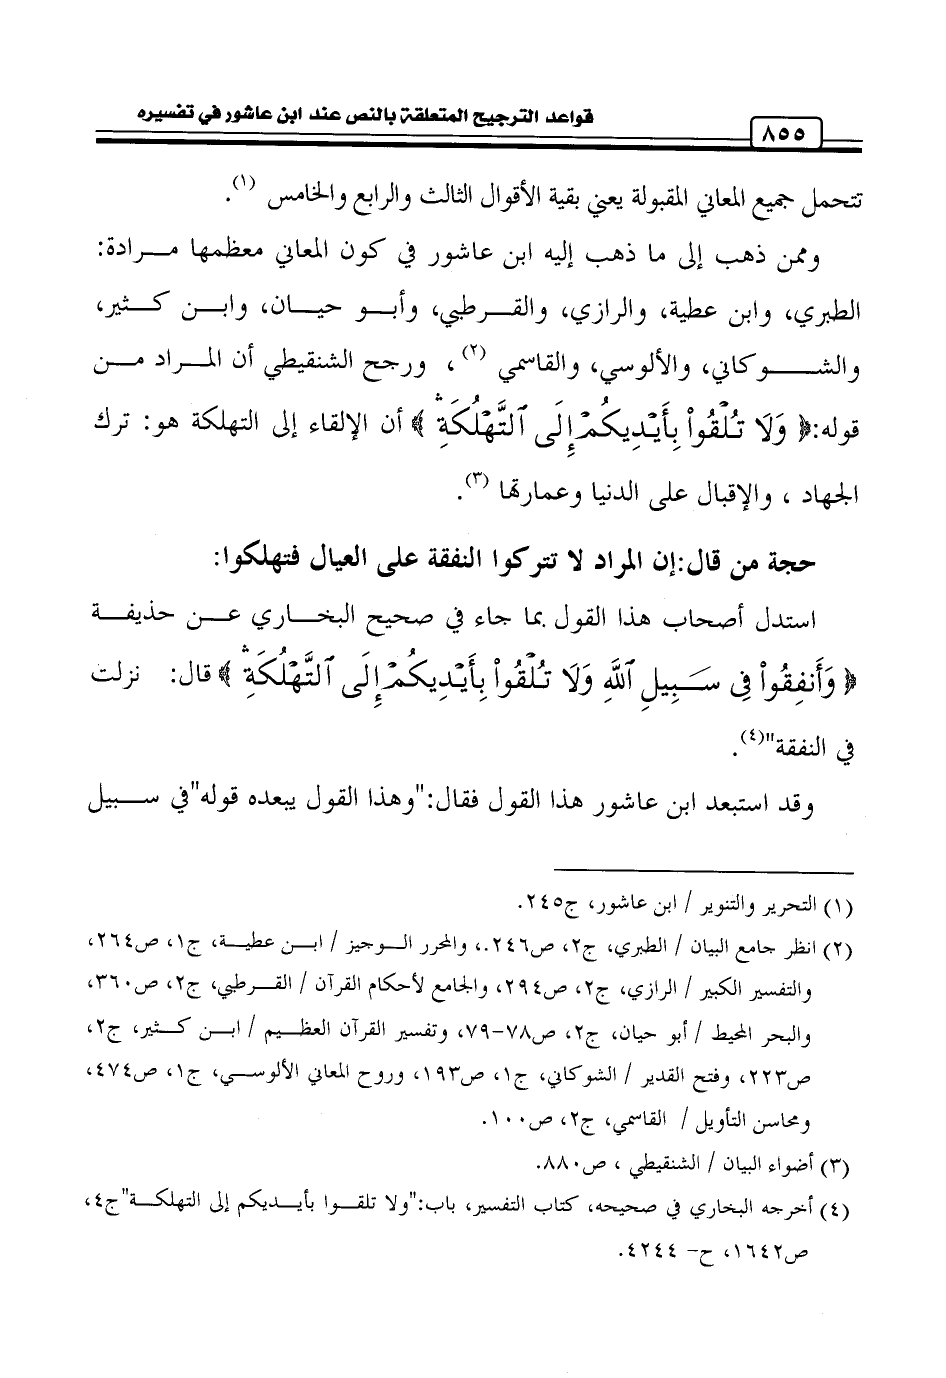 قواعد الترجيح المتعلقة بالنص عند ابن عاشور في تفسيره
٨٥٥
تتحمل جميع المعاني المقبولة يعني بقية الأقوال الثالث والرابع والخامس (١).
وممن ذهب إلى ما ذهب إليه ابن عاشور في كون المعاني معظمها مرادة:
الطبري، وابن عطية، والرازي، والقرطبي، وأبو حيان، وابن كثير،
والشوكاني، والألوسي، والقاسمي (٢)، ورجح الشنقيطي أن المراد من
قوله:﴿ وَلَا تُلْقُوا۟ بِأَيْدِيكُمْ إِلَى ٱلتَّهْلُكَةِ ۛ ﴾ أن الإلقاء إلى التهلكة هو: ترك
الجهاد ، والإقبال على الدنيا وعمارتها (٣).
حجة من قال:إن المراد لا تتركوا النفقة على العيال فتهلكوا:
استدل أصحاب هذا القول بما جاء في صحيح البخاري عن حذيفة
﴿ وَأَنفِقُوا۟ فِى سَبِيلِ ٱللَّهِ وَلَا تُلْقُوا۟ بِأَيْدِيكُمْ إِلَى ٱلتَّهْلُكَةِ ۛ ﴾ قال: نزلت
في النفقة"(٤).
وقد استبعد ابن عاشور هذا القول فقال:"وهذا القول يبعده قوله"في سبيل
(١) التحرير والتنوير / ابن عاشور، ج٢٤٥.
(٢) انظر جامع البيان / الطبري، ج٢، ص٢٤٦.، والمحرر الوجيز / ابن عطية، ج١، ص٢٦٤،
والتفسير الكبير / الرازي، ج٢، ص٢٩٤، والجامع لأحكام القرآن / القرطبي، ج٢، ص٣٦٠،
والبحر المحيط / أبو حيان، ج٢، ص٧٨-٧٩، وتفسير القرآن العظيم / ابن كثير، ج٢،
ص٢٢٣، وفتح القدير / الشوكاني، ج١، ص١٩٣، وروح المعاني الألوسي، ج١، ص٤٧٤،
ومحاسن التأويل / القاسمي، ج٢، ص١٠٠.
(٣) أضواء البيان / الشنقيطي ، ص٨٨٠.
(٤) أخرجه البخاري في صحيحه، كتاب التفسير، باب:"ولا تلقوا بأيديكم إلى التهلكة"ج٤،
ص١٦٤٢، ح- ٤٢٤٤.